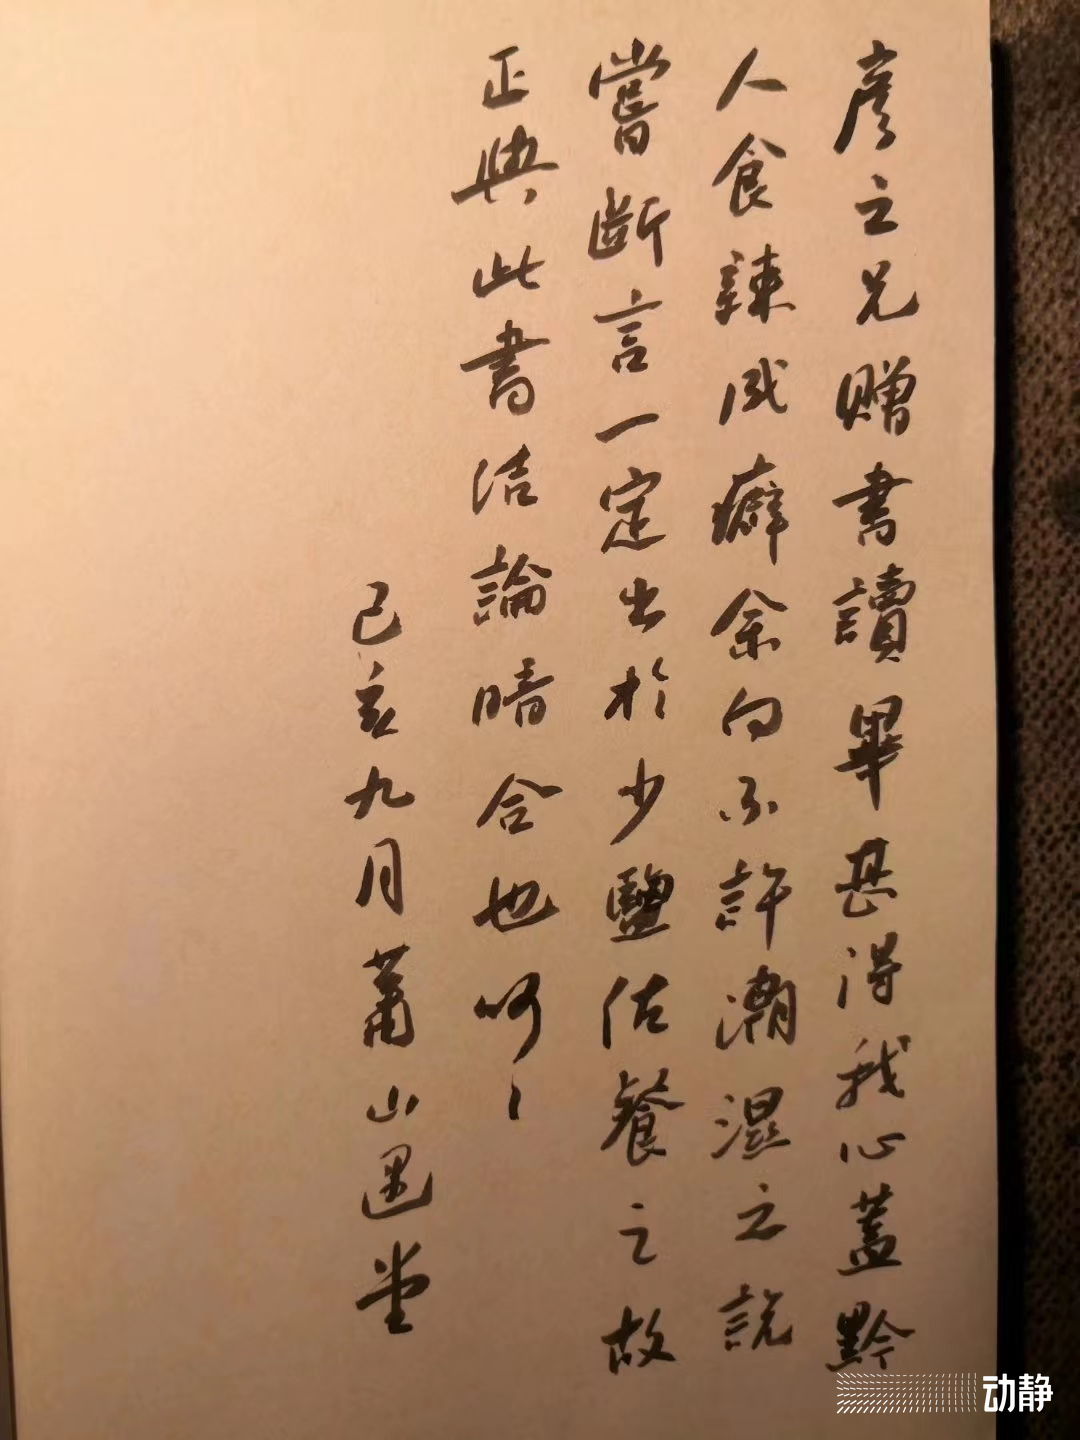 彦之兄赠書讀畢甚得我心蓋黔
人食辣成癖余向不許潮濕之說
嘗斷言一定出於少鹽佐餐之故
正與此書结論暗合也呵〻
己亥九月萧山遇堂
动静